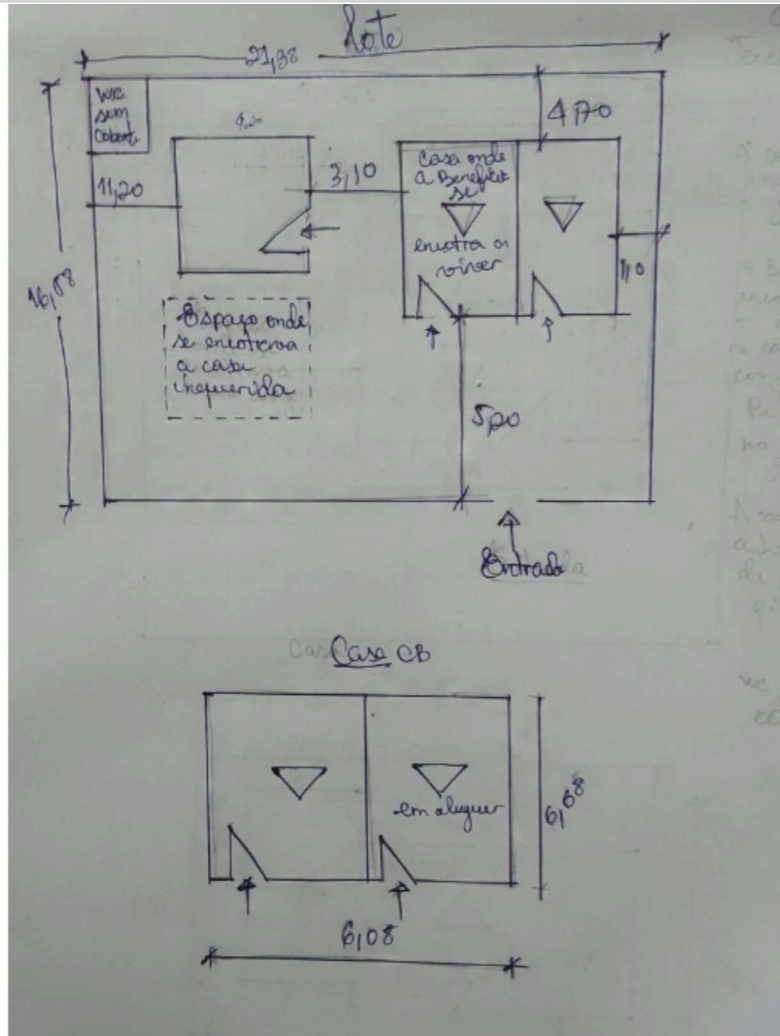 Lote
21,38
WC
sem
Cobert
4,20
11,20
3,10
4,70
Casa onde
a Benefici
se
encotra a
viver
1,10
16,08
Espaço onde
se encotrava
a casa
inquerida
5,00
Entrada
Casa CB
em aluguer
6,08
6,08